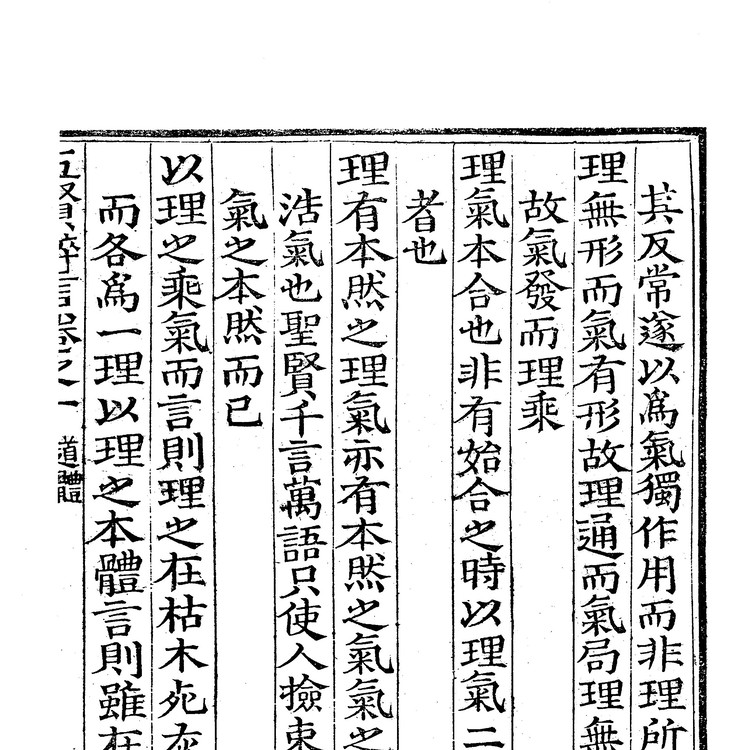 其反常遂以爲氣獨作用而非理所
理無形而氣有形故理通而氣局理無
故氣發而理乘
理氣本合也非有始合之時以理氣二
者也
理有本然之理氣亦有本然之氣氣之
浩氣也聖賢千言萬語只使人撿束
氣之本然而已
以理之乘氣而言則理之在枯木死灰
而各爲一理以理之本體言則雖在
五賢粹言卷之一 道體